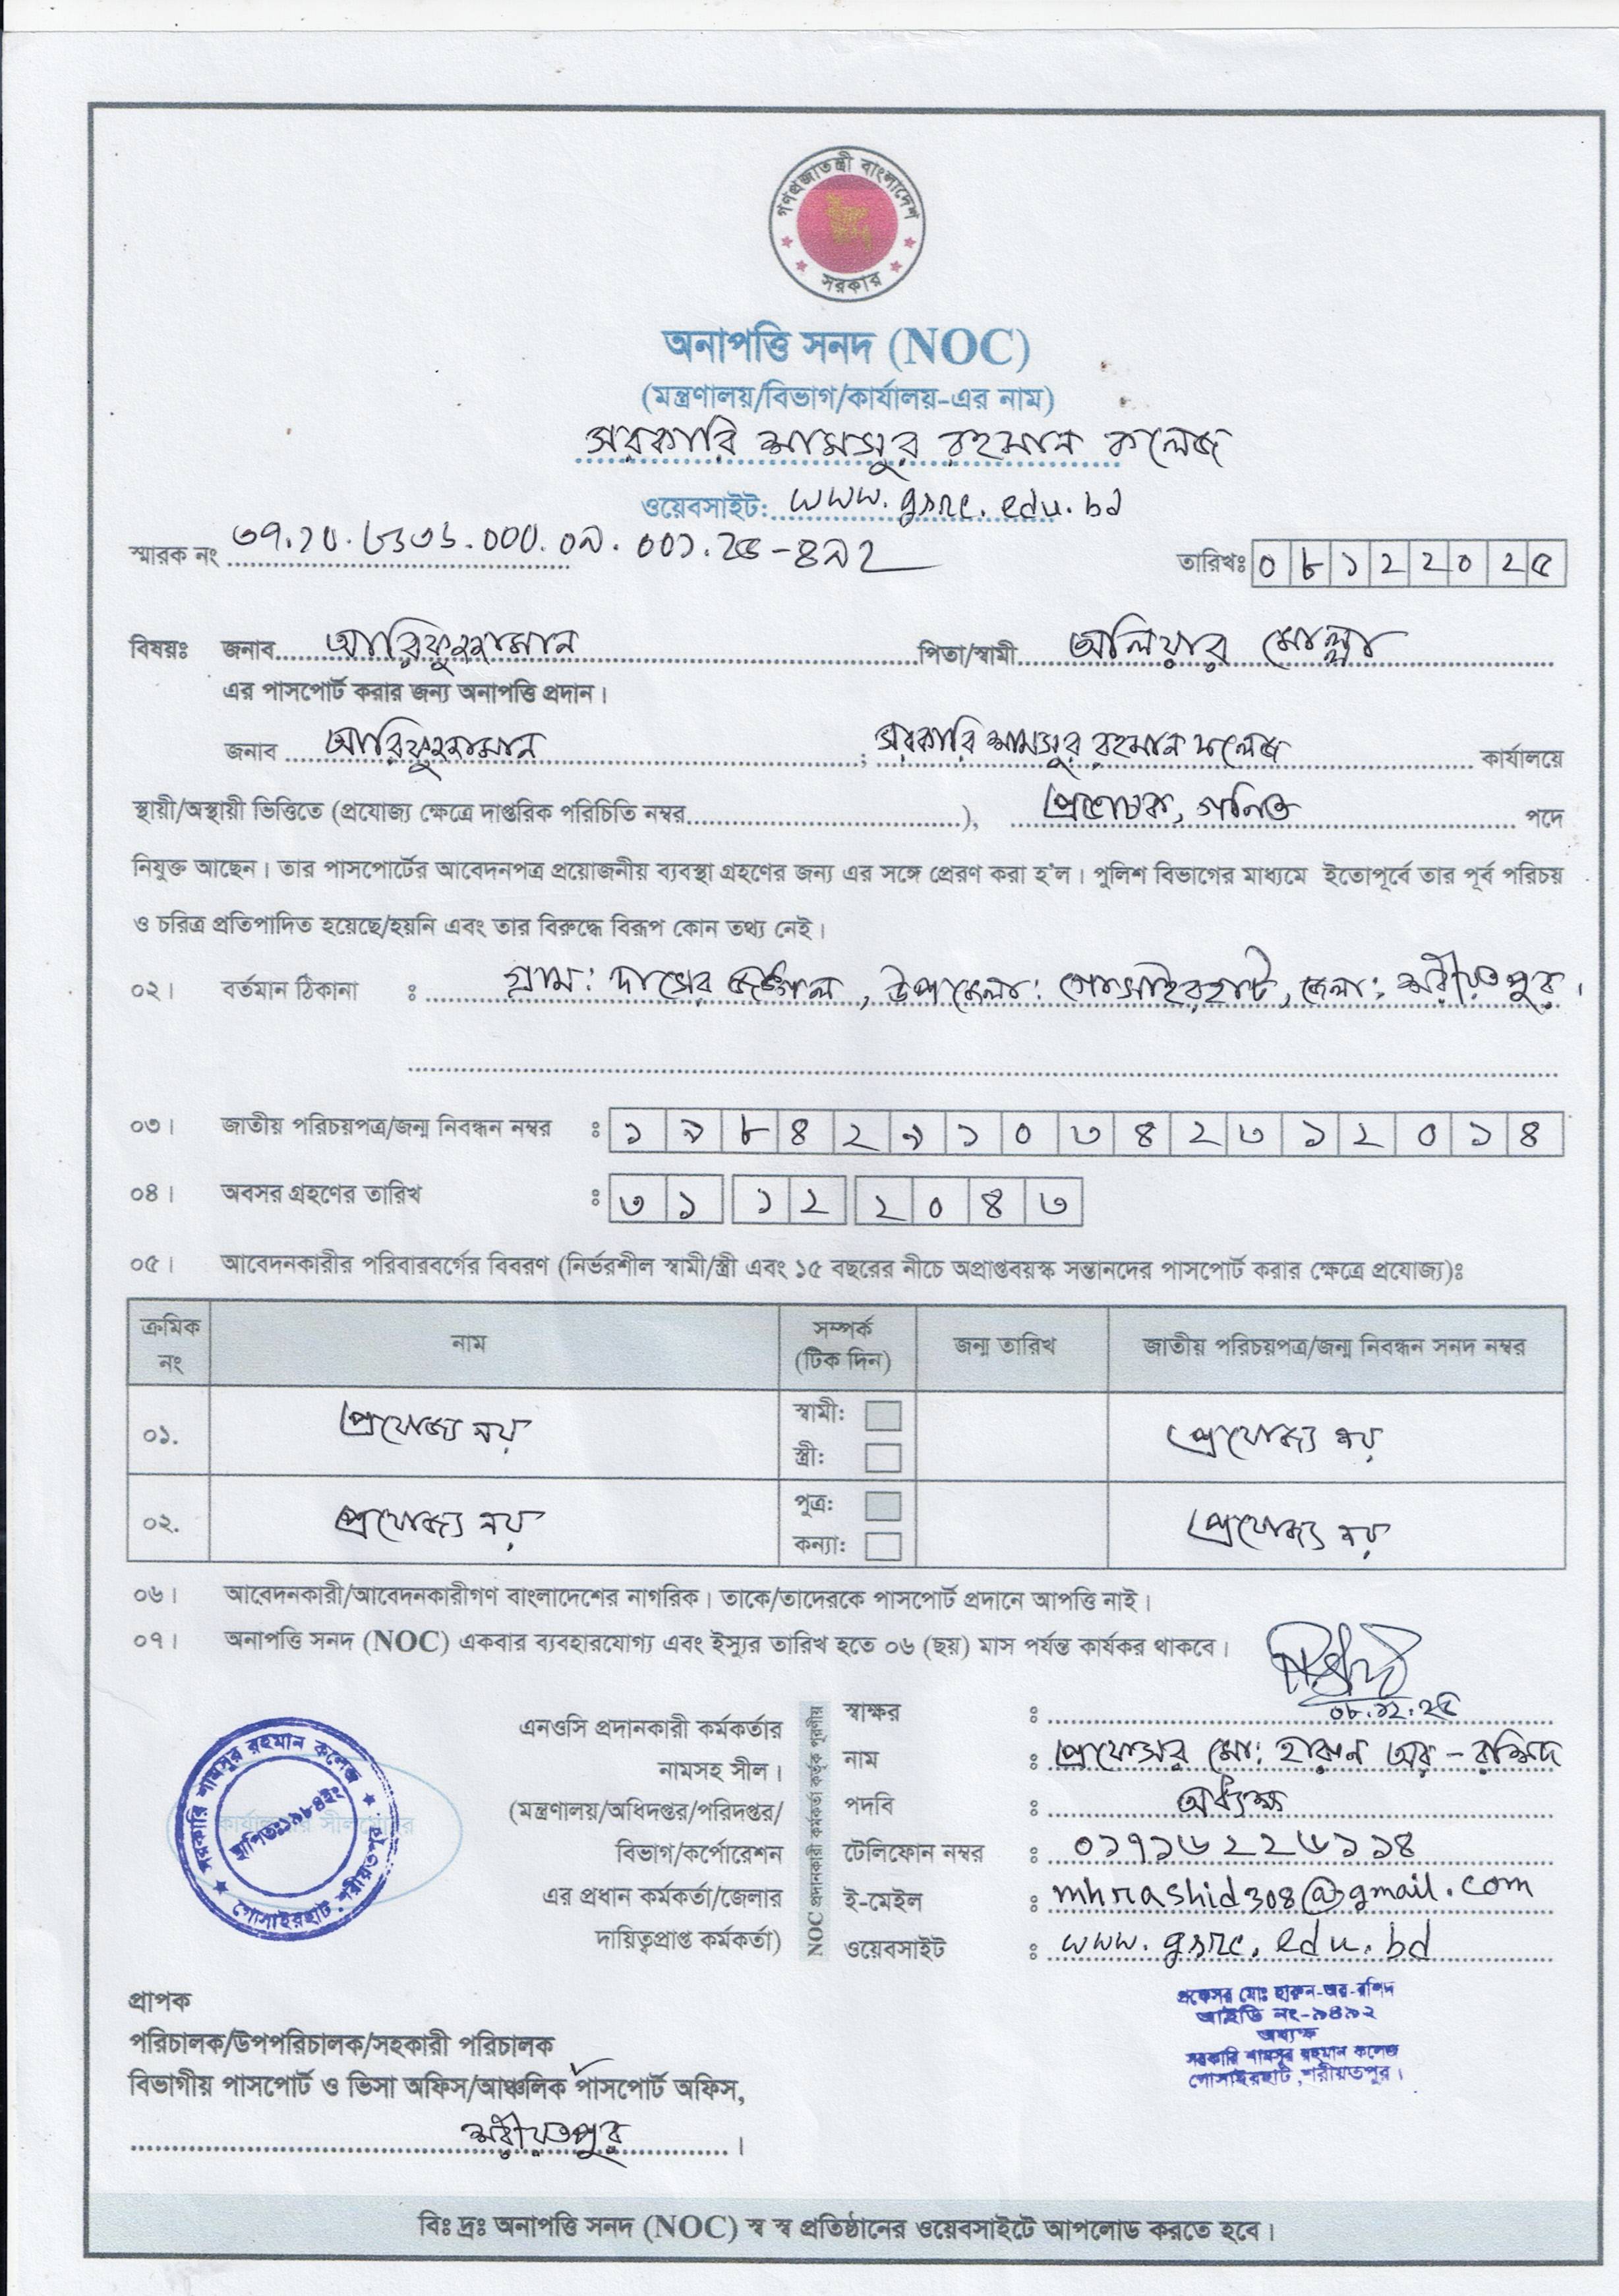 গণপ্রজাতন্ত্রী বাংলাদেশ
সরকার
অনাপত্তি সনদ (NOC)
(মন্ত্রণালয়/বিভাগ/কার্যালয়-এর নাম)
সরকারি শামসুর রহমান কলেজ
ওয়েবসাইট: www.gsrc.edu.bd
স্মারক নং ৩৭.২০.৮৬৩৬.০০০.০৯.০০১.২৫-৪৯২ তারিখঃ ০৮১২২০২৫
বিষয়ঃ জনাব আরিফুজ্জামান পিতা/স্বামী অলিয়ার মোল্লা
এর পাসপোর্ট করার জন্য অনাপত্তি প্রদান।
জনাব আরিফুজ্জামান ; সরকারি শামসুর রহমান কলেজ কার্যালয়ে
স্থায়ী/অস্থায়ী ভিত্তিতে (প্রযোজ্য ক্ষেত্রে দাপ্তরিক পরিচিতি নম্বর..............), প্রভাষক, গনিত পদে
নিযুক্ত আছেন। তার পাসপোর্টের আবেদনপত্র প্রয়োজনীয় ব্যবস্থা গ্রহণের জন্য এর সঙ্গে প্রেরণ করা হ'ল। পুলিশ বিভাগের মাধ্যমে ইতোপূর্বে তার পূর্ব পরিচয়
ও চরিত্র প্রতিপাদিত হয়েছে/হয়নি এবং তার বিরুদ্ধে বিরূপ কোন তথ্য নেই।
০২। বর্তমান ঠিকানা ঃ গ্রাম: দাসের জঙ্গল, উপজেলা: গোসাইরহাট, জেলা: শরীয়তপুর।
০৩। জাতীয় পরিচয়পত্র/জন্ম নিবন্ধন নম্বর ঃ ১৯৮৪২৯১০৩৪২৩১২০১৪
০৪। অবসর গ্রহণের তারিখ ঃ ৩১ ১২ ২০৪৩
০৫। আবেদনকারীর পরিবারবর্গের বিবরণ (নির্ভরশীল স্বামী/স্ত্রী এবং ১৫ বছরের নীচে অপ্রাপ্তবয়স্ক সন্তানদের পাসপোর্ট করার ক্ষেত্রে প্রযোজ্য)ঃ
ক্রমিক নং নাম সম্পর্ক (টিক দিন) জন্ম তারিখ জাতীয় পরিচয়পত্র/জন্ম নিবন্ধন সনদ নম্বর
০১. প্রযোজ্য নয় স্বামী: প্রযোজ্য নয়
স্ত্রী:
০২. প্রযোজ্য নয় পুত্র: প্রযোজ্য নয়
কন্যা:
০৬। আবেদনকারী/আবেদনকারীগণ বাংলাদেশের নাগরিক। তাকে/তাদেরকে পাসপোর্ট প্রদানে আপত্তি নাই।
০৭। অনাপত্তি সনদ (NOC) একবার ব্যবহারযোগ্য এবং ইস্যুর তারিখ হতে ০৬ (ছয়) মাস পর্যন্ত কার্যকর থাকবে।
সরকারি শামসুর রহমান কলেজ
স্থাপিতঃ১৯৮৪ইং
গোসাইরহাট, শরীয়তপুর
এনওসি প্রদানকারী কর্মকর্তার
নামসহ সীল।
(মন্ত্রণালয়/অধিদপ্তর/পরিদপ্তর/
বিভাগ/কর্পোরেশন
এর প্রধান কর্মকর্তা/জেলার
দায়িত্বপ্রাপ্ত কর্মকর্তা)
NOC প্রদানকারী কর্মকর্তা কর্তৃক পূরণীয়
স্বাক্ষর ঃ ০৮.১২.২৫
নাম ঃ প্রফেসর মো: হারুন অর-রশিদ
পদবি ঃ অধ্যক্ষ
টেলিফোন নম্বর ঃ ০১৭১৬২২৬১১৪
ই-মেইল ঃ mhrashid308@gmail.com
ওয়েবসাইট ঃ www.gsrc.edu.bd
প্রফেসর মোঃ হারুন-অর-রশিদ
আইডি নং-৯৪৯২
অধ্যক্ষ
সরকারি শামসুর রহমান কলেজ
গোসাইরহাট, শরীয়তপুর।
প্রাপক
পরিচালক/উপপরিচালক/সহকারী পরিচালক
বিভাগীয় পাসপোর্ট ও ভিসা অফিস/আঞ্চলিক পাসপোর্ট অফিস,
শরীয়তপুর।
বিঃ দ্রঃ অনাপত্তি সনদ (NOC) স্ব স্ব প্রতিষ্ঠানের ওয়েবসাইটে আপলোড করতে হবে।